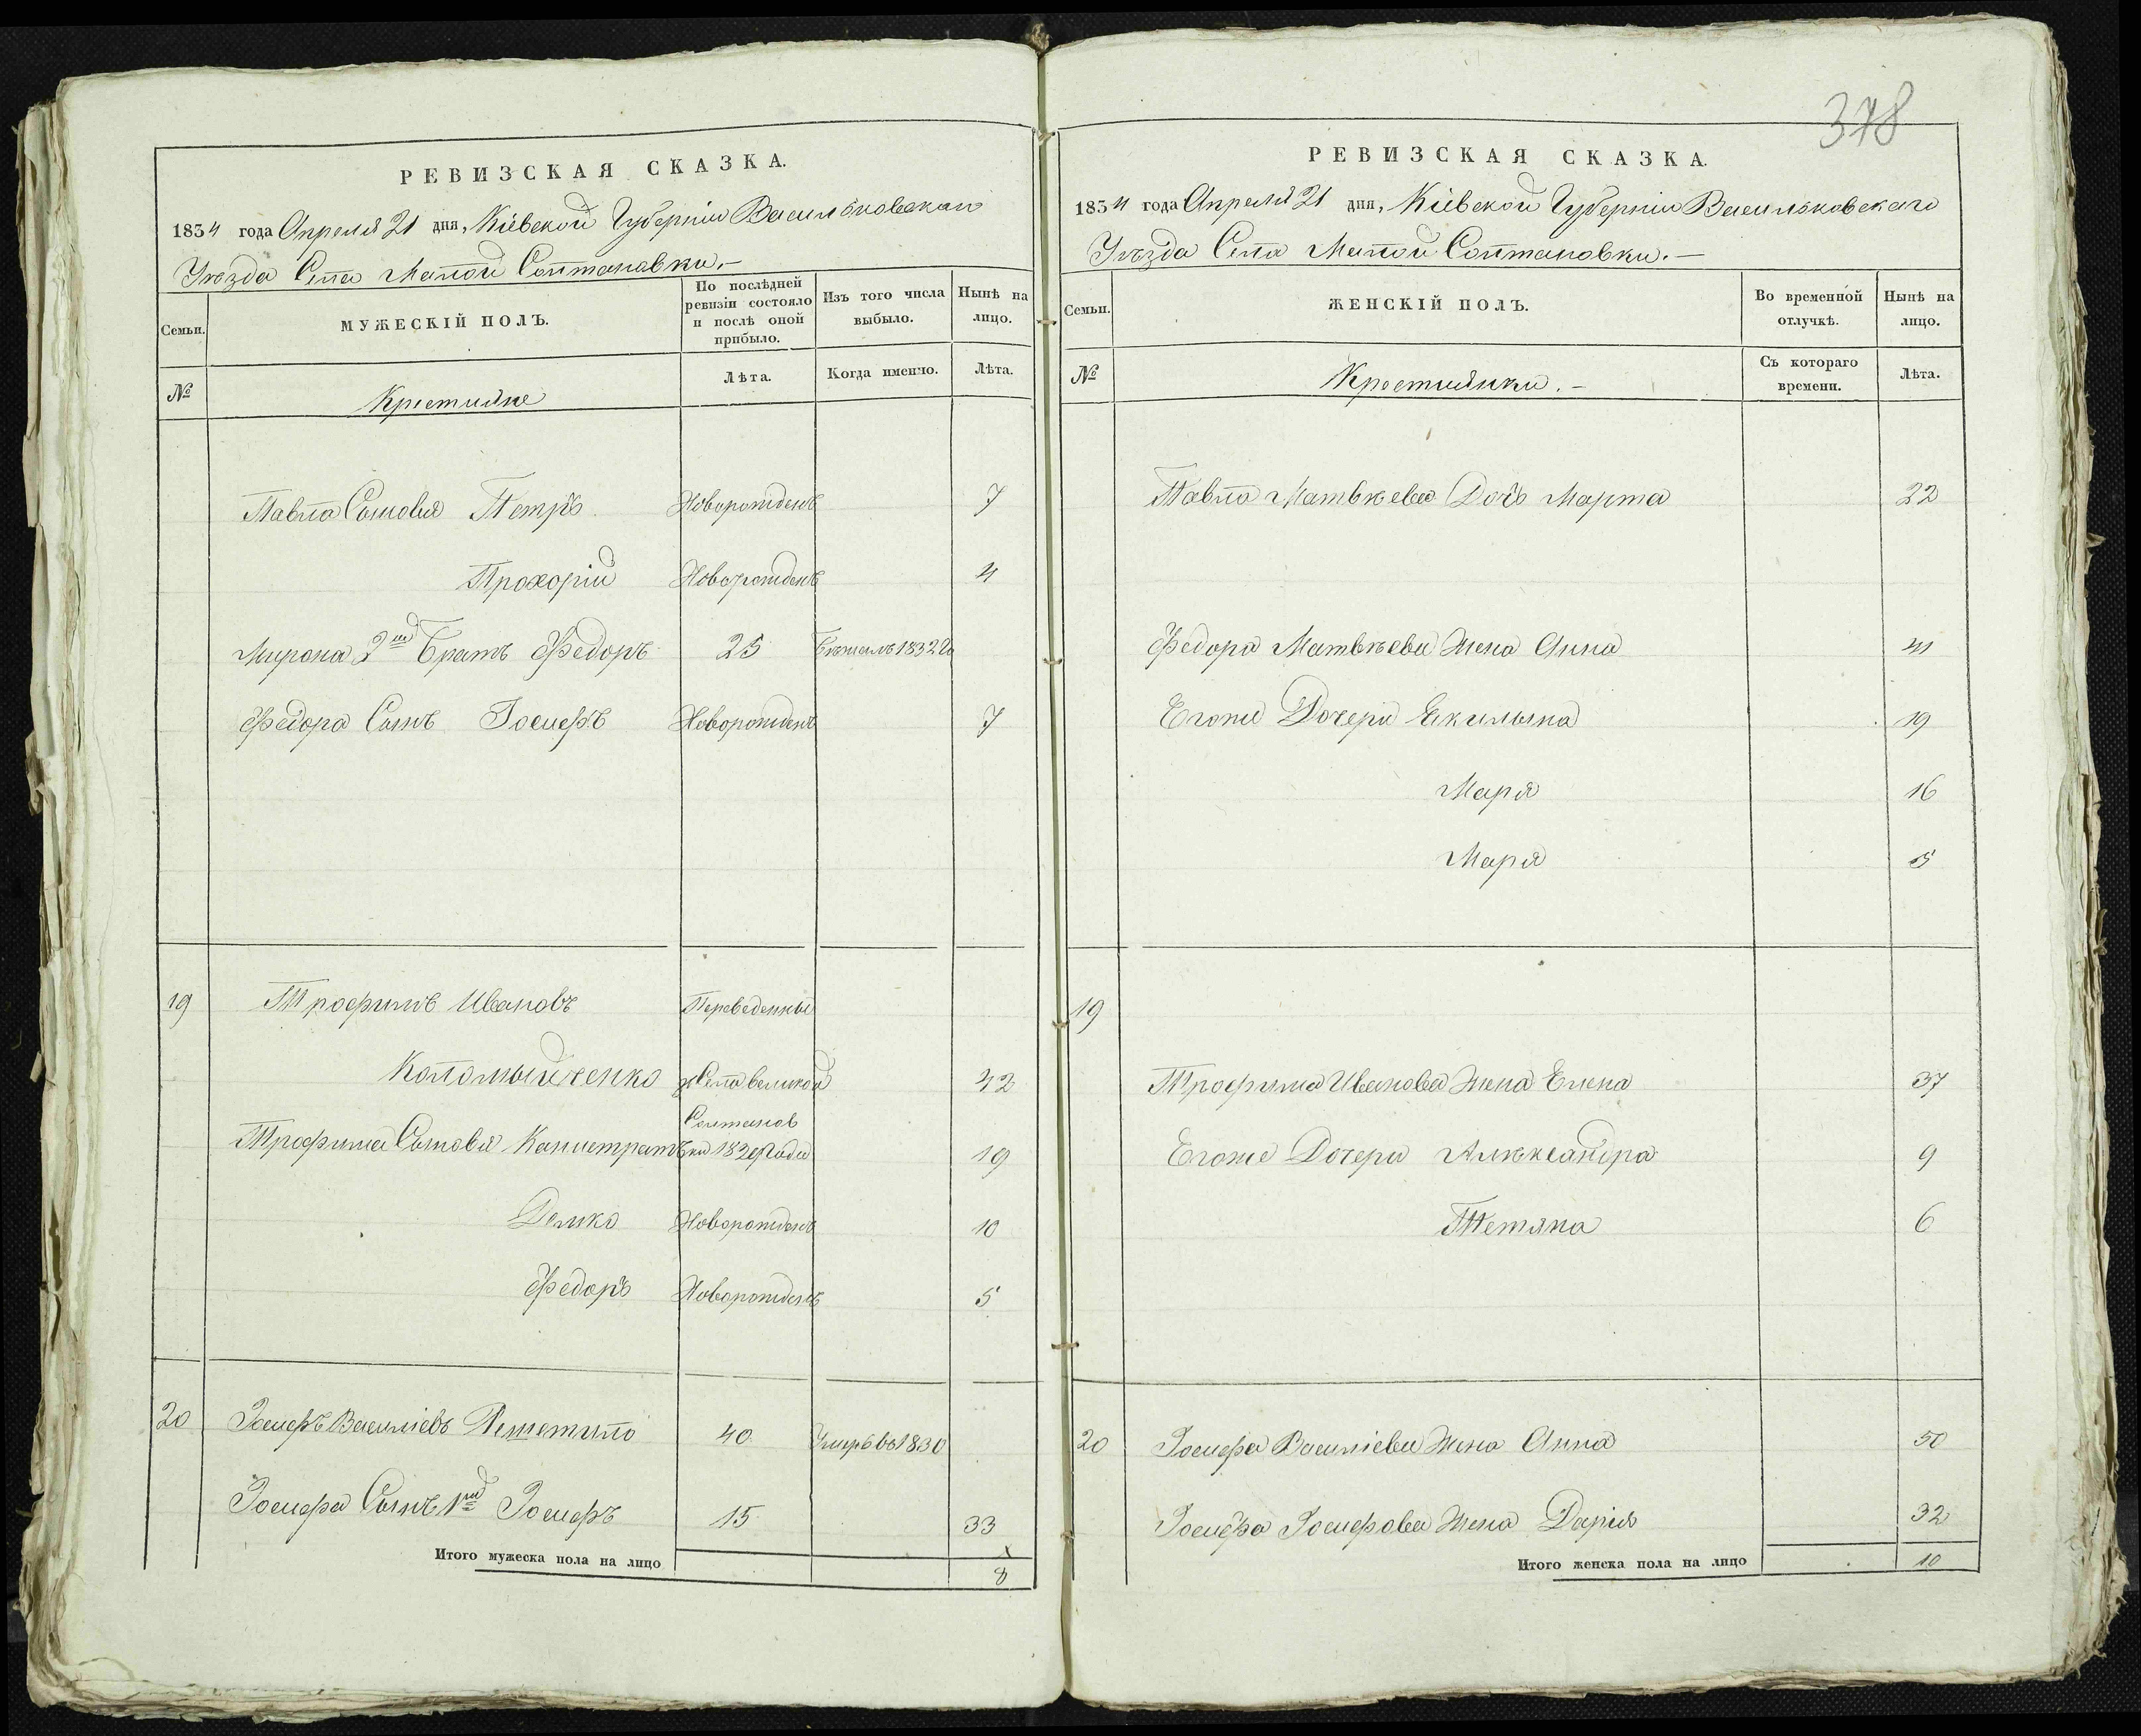 РЕВИЗСКАЯ СКАЗКА.
1834 года Апреля 21 дня, Кіевской Губерніи Васильковскаго
Уѣзда Села Малой Солтановки.–
Семьи.
МУЖЕСКІЙ ПОЛЪ.
По послѣдней ревизіи состояло и послѣ оной прибыло.
Изъ того числа выбыло.
Нынѣ на лицо.
№
Крестияне
Лѣта.
Когда именно.
Лѣта.
Павла Сыновья Петръ Новорожденъ 7
Прохорій Новорожденъ 4
Мирона 2й Братъ Федоръ 25 Бежалъ 1832го
Федора Сынъ Іосифъ Новорожденъ 7
19 Трофимъ Ивановъ Переведенные
Коломыйченко зСела великой 42
Солтанов
Трофима Сыновья Канистратъ ки 1829 года 19
Демко Новорожденъ 10
Федоръ Новорожденъ 5
20 Іосифъ Василіевъ Решетило 40 Умръ во 1830
Іосифа Сынъ 1й Іосифъ 15 33
Итого мужеска пола на лицо 8
378
РЕВИЗСКАЯ СКАЗКА.
1834 года Апреля 21 дня, Кіевской Губерніи Васильковскаго
Уѣзда Села Малой Солтановки.–
Семьи.
ЖЕНСКІЙ ПОЛЪ.
Во временной отлучкѣ.
Нынѣ на лицо.
№
Крестиянки.–
Съ котораго времени.
Лѣта.
Павла Матвѣева Дочь Марта 22
Федора Матвѣева Жена Анна 41
Егоже Дочери Якилына 19
Марія 16
Марія 15
19
Трофима Иванова Жена Елена 37
Егоже Дочери Алѣксандра 9
Тетяна 6
20 Іосифа Василіева Жена Анна 50
Іосифа Іосифова Жена Дарія 32
Итого женска пола на лицо 10